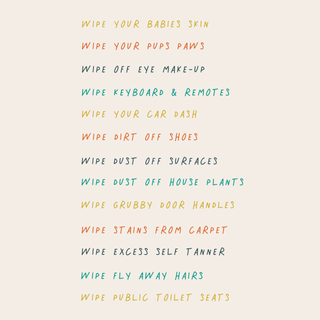 WIPE YOUR BABIES SKIN
WIPE YOUR PUPS PAWS
WIPE OFF EYE MAKE-UP
WIPE KEYBOARD & REMOTES
WIPE YOUR CAR DASH
WIPE DIRT OFF SHOES
WIPE DUST OFF SURFACES
WIPE DUST OFF HOUSE PLANTS
WIPE GRUBBY DOOR HANDLES
WIPE STAINS FROM CARPET
WIPE EXCESS SELF TANNER
WIPE FLY AWAY HAIRS
WIPE PUBLIC TOILET SEATS